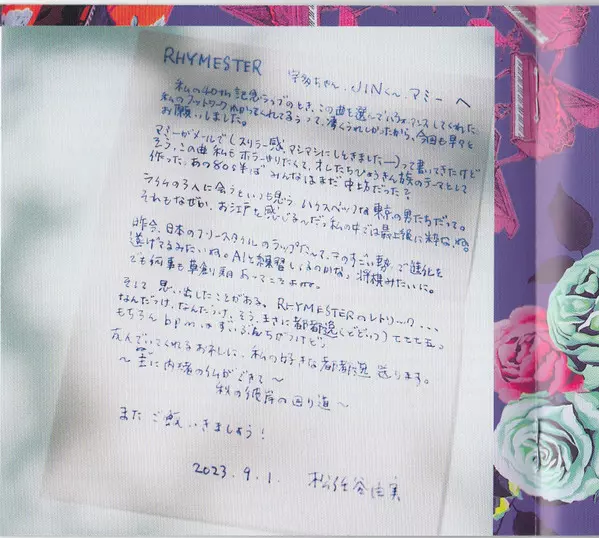 RHYMESTER 宇多ちゃん、JINくん、マミーへ
私の40th記念ラップのとき、この曲を選んで してくれた
私のフットワーク わかってくれてるぅって、凄くうれしかったから、今回も早々と
お願いしました。
マミーがメールで(スリラー感、マシマシにしときましたー)って書いてきたけど
そう、この曲 私もホラーやりたくて、オレたちひょうきん族のテーマとして
作った。あの80s半ば みんなはまだ中坊だった?
ライムの3人に会うといつも思う ハイスペックな東京の男たちだって。
それもなぜか、お江戸を感じるんだっ 私の中では最上級に粋なのね。
昨今、日本のフリースタイルのラップだって、ものすごい勢いで進化を
遂げてるみたいね。AIと練習してるのかな、将棋みたいに。
でも何事も草創期あってこそよね。
そして 思い出したことがある、RHYMESTERのレトリック・・・
なんだっけ、なんだっけ、そう、まさに都都逸(どどいつ)七七七五。
もちろん bpmはずいぶんちがうけど
友んでいてくれるお礼に、私の好きな都都逸 送ります。
〜 に内緒の仏ができて〜
秋の彼岸の廻り道〜
また ご飯いきましょう!
2023.9.1. 松任谷由実